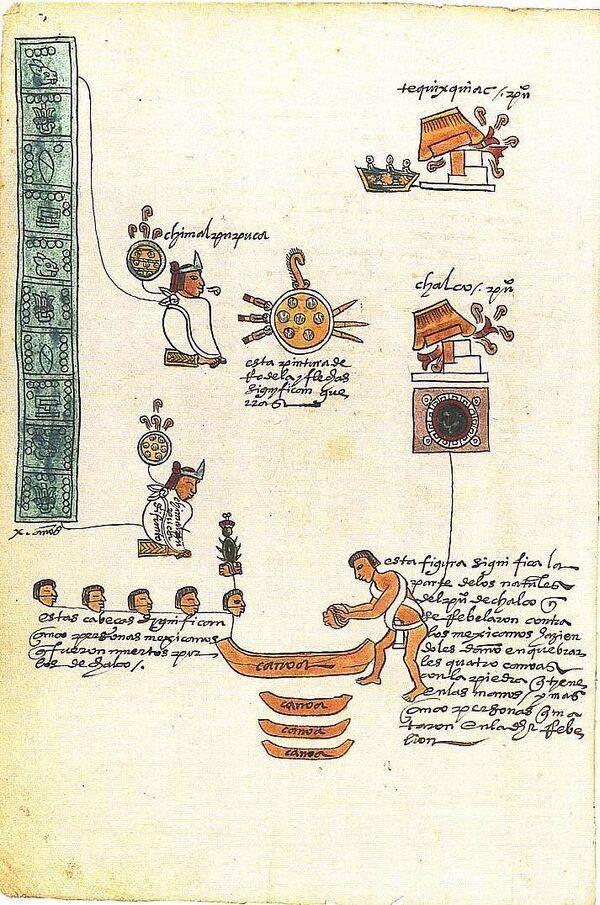 tequixquiac /. pu°
chimalpupuca
chalco /. pu°
esta pintura de
rodela y flechas
significan gue
rras
chimalpu
puca
difunto
x. años
esta figura significa la
parte de los natales
del pu° de chalco q
se rebelaron contra
los mexicanos hazien
doles daño en quebrar
les quatro canoas
con la piedra q tiene
en las manos / y mas
cinco personas q ma
taron en la dha rebe
lion
estas cabeças significan
cinco personas mexicanos
q fueron muertos por
los de chalco /.
canoa
canoa
canoa
canoa